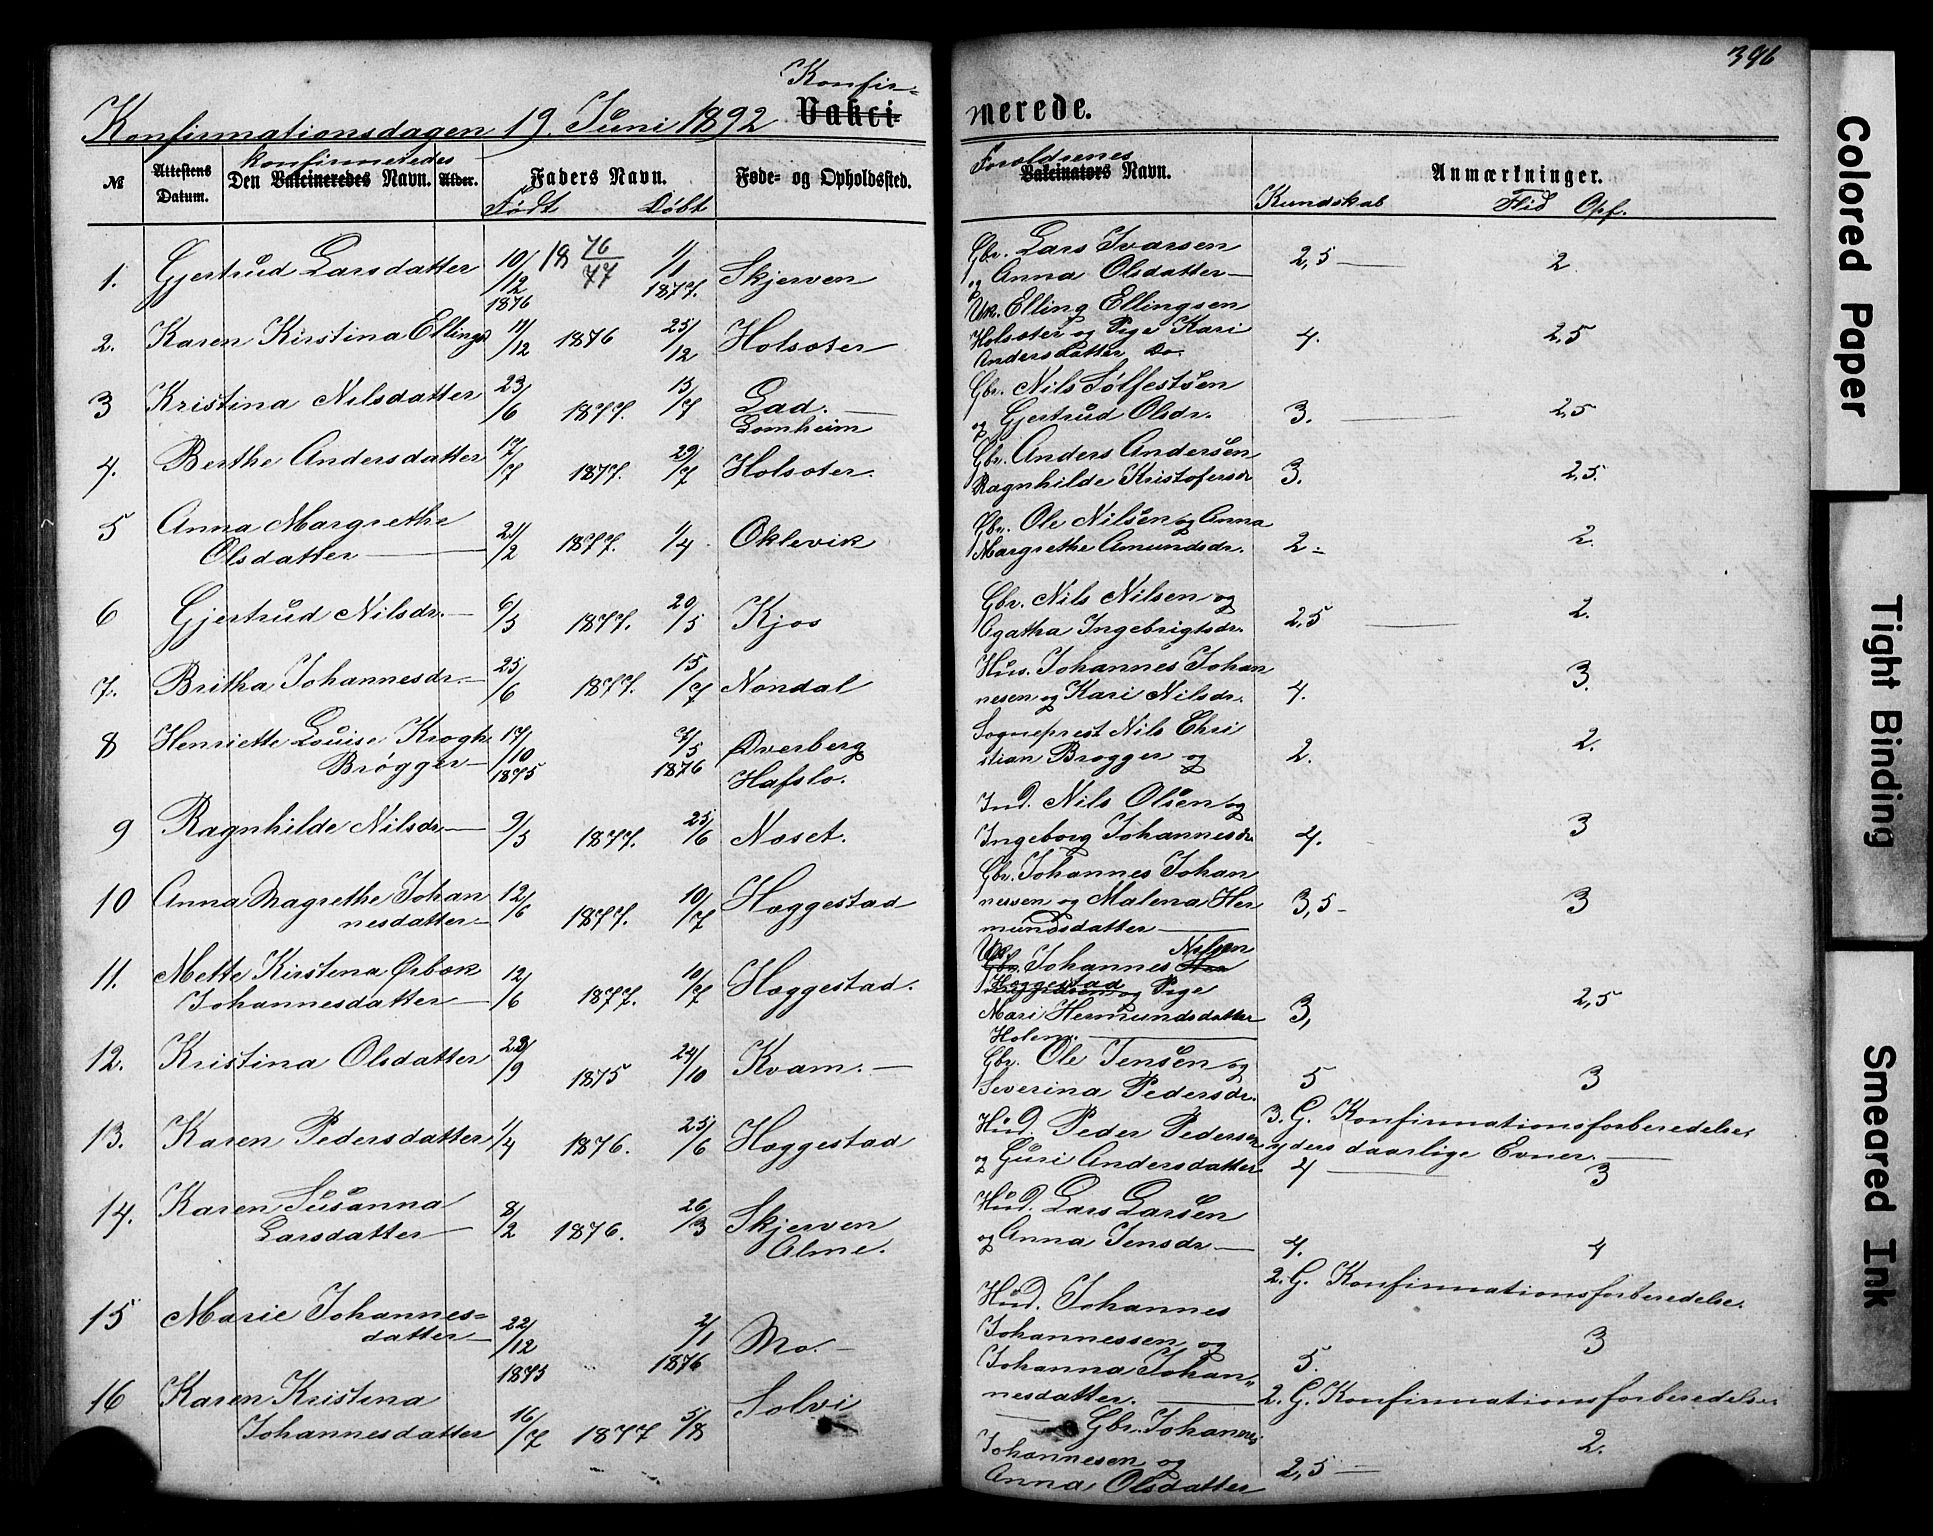 396
Konfir-
Konfirmationsdagen 19. Juni 1892 Vakci- merede.
№ Attestens Datum. Den konfirmeredes Vakcineredes Navn. Alder. Faders Navn. Født Døbt Føde- og Opholdssted. Forældrenes Vakcinators Navn. Anmærkninger. Kundskab Flid Opf.
1. Gjertrud Larsdatter 10/12 1876 18 76/77 1/1 1877. Skjerven
Gbr. Lars Ivarsen
og Anna Olsdatter— 2,5 — 2
2. Karen Kirstina Ellings 11/12 1876 25/12 Holsæter
Uk. Elling Ellingsen
Holsæter og Pige Kari
Andersdatter Do. 4. 2,5
3 Kristina Nilsdatter 23/6 1877. 15/7 Lad. —
Lomheim
Gbr. Nils Sølfestsen
og Gjertrud Olsdr. 3. — 2,5
4. Berthe Andersdatter 17/7 1877. 29/7 Holsæter.
Gbr. Anders Andersen
Ragnhilde Kristofersdr 3. 2,5.
5 Anna Margrethe
Olsdatter — 21/2 1877. 1/4 Oklevik
Gbr. Ole Nilsen og Anna
Margrethe Amundsdr. 2 - 2.
6 Gjertrud Nilsdr.— 6/5 1877. 20/5 Kjos
Gbr. Nils Nilsen og
Agatha Ingebrigtsdr. 2,5 — 2.
7. Britha Johannesdr.— 25/6 1877. 15/7 Nondal
Hus. Johannes Johan
nesen og Kari Nilsdr. 4. 3.
8 Henriette Louise Krogh
Brøgger— 17/10 1875 7/5 1876 Øverberg
Hafslo.
Sogneprest Nils Chri
stian Brøgger og 2. 2.
9 Ragnhilde Nilsdr— 9/5 1877. 25/6 Næset.
Ind. Nils Olsen og
Ingeborg Johannesdr. 4. 3
10 Anna Magrethe Johan
nesdatter— 12/6 1877. 10/7 Hæggestad
Gbr. Johannes Johan
nessen og Malena Her
mundsdatter — 3,5 - 3
11. Mette Kirstena Ørbæk
Johannesdatter — 12/6 1877. 10/7 Hæggestad.
Uk. Gbr. Johannes Nilsen
Hæggestad og Pige
Mari Hermundsdatter
Holem. — 3, 2,5
12. Kristina Olsdatter 22/9 1875 24/10 Kvam. —
Gbr. Ole Jensen og
Severina Pedersdr. 5 3
13. Karen Pedersdatter 1/4 1876. 25/6 Hæggestad
Hud. Peder Pedersen
og Guri Andersdatter 3. G. Konfirmationsforberedelse
ders daarlige Evner. —
4 — 3
14. Karen Susanna
Larsdatter — 8/2 1876. 26/3 Skjerven
Alme.
Hud. Lars Larsen
og Anna Jensdr — 4. 4
2. G. Konfirmationsforberedelse.
15 Marie Johannes=
datter— 22/12 1875 2/1 1876 Mo. —
Hud. Johannes
Johannessen og
Johanna Johan"
nesdatter. — 5. 3
2. G. Konfirmationsforberedelse
16 Karen Kristina
Johannesdatter 16/7 1877 5/8 Solvi
Gbr. Johannes
Johannesen og
Anna Olsdatter 2,5 — 2.
Colored Paper
Tight Binding
Smeared Ink